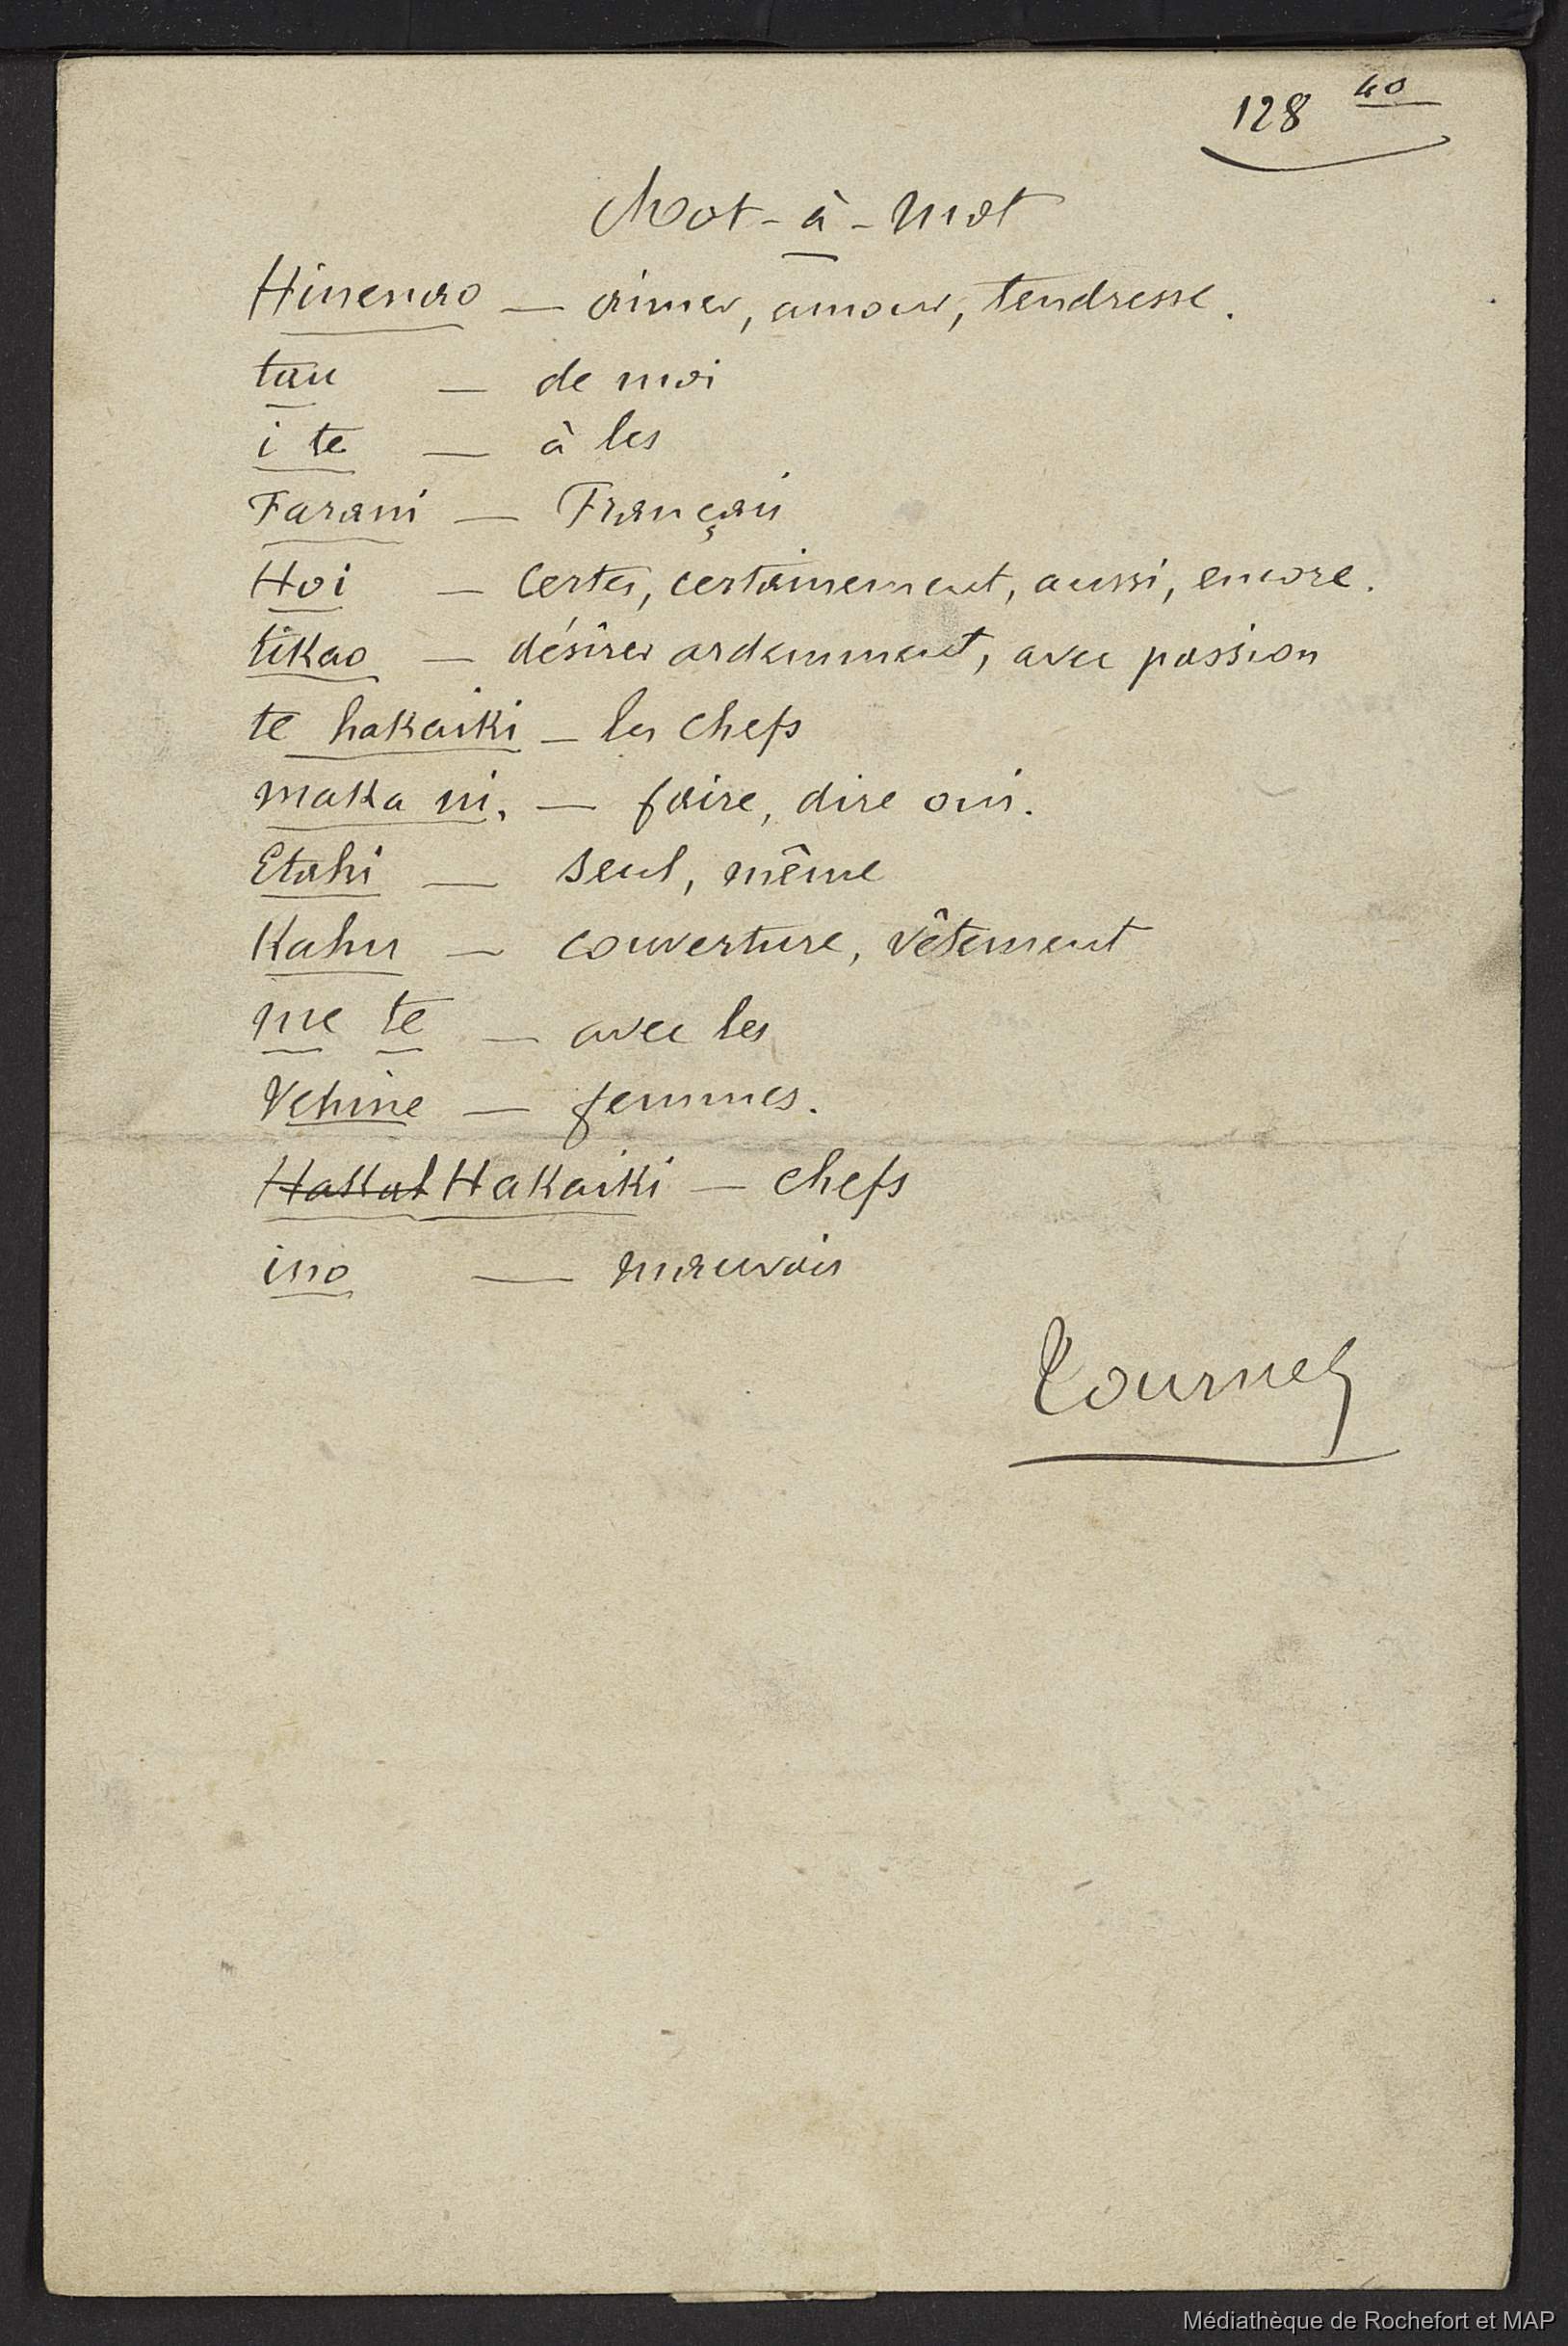 128 40
Mot-à-mot
Hinenao — aimer, amour, tendresse.
tau — de moi
i te — à les
Farani — Français
Hoi — Certes, certainement, aussi, encore.
tikao — désirer ardemment, avec passion
te hakaiki — les chefs
maka ui. — faire, dire oui.
Etahi — seul, même
Kahu — couverture, vêtement
me te — avec les
Vehine — femmes.
Hakaiki — chefs
ino — mauvais
Médiathèque de Rochefort et MAP